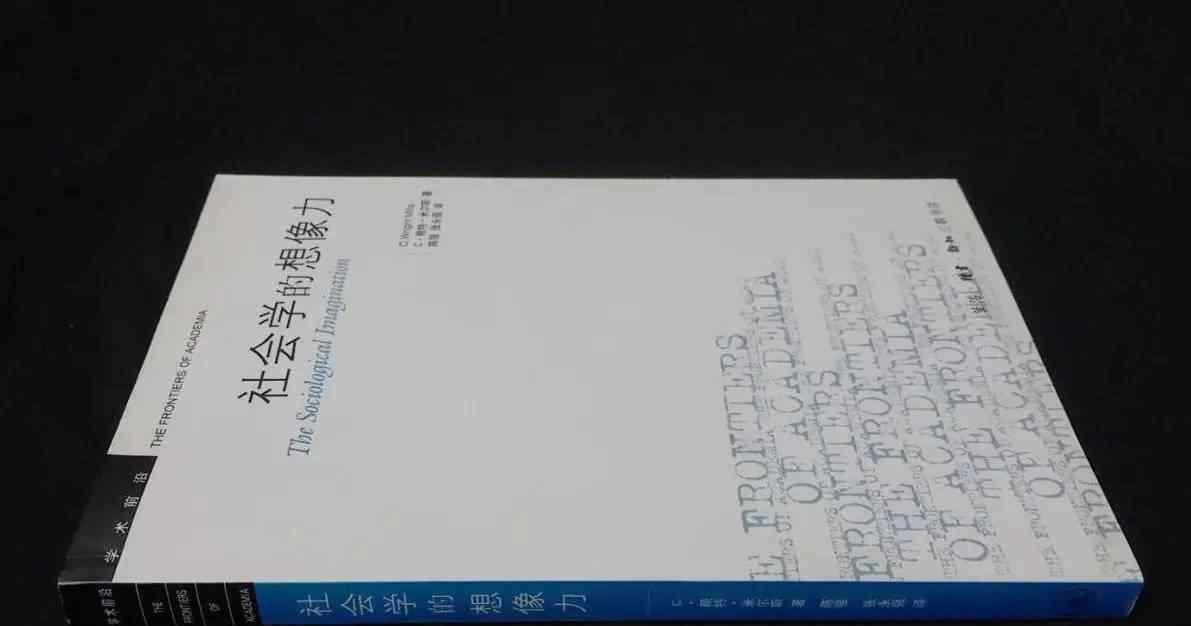 THE FRONTIERS OF ACADEMIA
学术前沿
社会学的想像力
The Sociological Imagination
C.Wright Mills
C·赖特·米尔斯 著
陈强 张永强 译
THE FRONTIERS
OF ACADEMIA
FRONTIERS
THE FRONTIERS
OF ACADEMIA
THE FRONTIERS
OF ACADEMIA
学术前沿
THE
FRONTIERS
OF
ACADEMIA
社会学的想像力
C·赖特·米尔斯 著 陈强 张永强 译